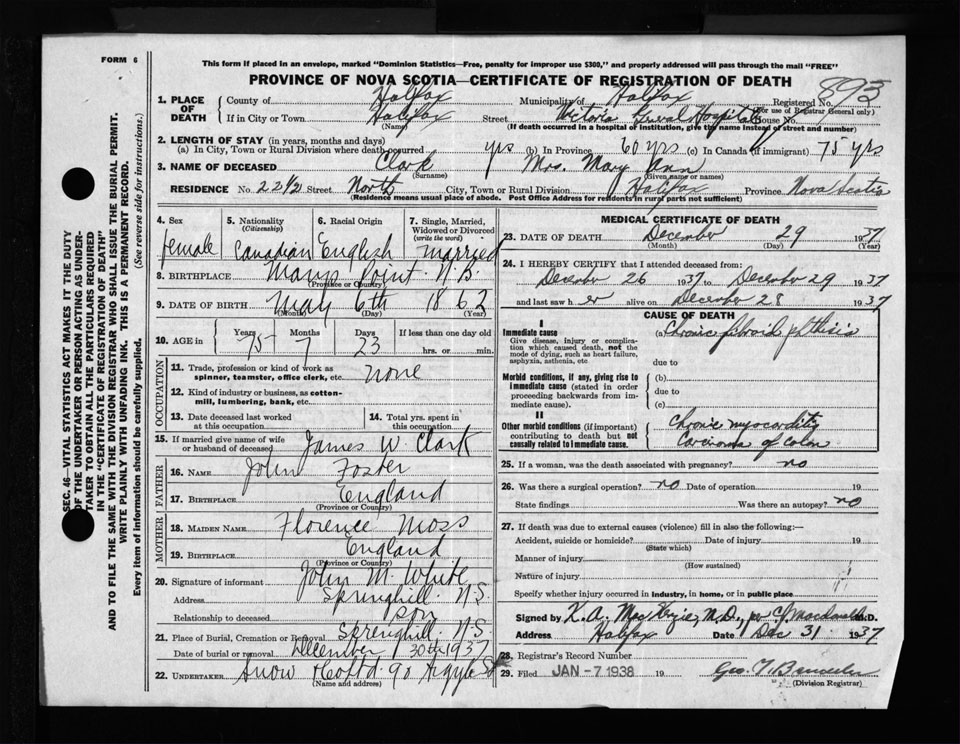 FORM 6
This form if placed in an envelope, marked "Dominion Statistics—Free, penalty for improper use $300," and properly addressed will pass through the mail "FREE"
PROVINCE OF NOVA SCOTIA—CERTIFICATE OF REGISTRATION OF DEATH
893
1. PLACE OF DEATH
County of Halifax Municipality of Halifax Registered No.
(For use of Registrar General only)
If in City or Town Halifax Street Victoria General Hospital House No.
(Name) (If death occurred in a hospital or institution, give the name instead of street and number)
2. LENGTH OF STAY (in years, months and days)
(a) In City, Town or Rural Division where death occurred yrs (b) In Province 60 yrs (c) In Canada (if immigrant) 75 yrs
3. NAME OF DECEASED Clark Mrs. Mary Ann
(Surname) (Given name or names)
RESIDENCE No. 22 1/2 Street North City, Town or Rural Division Halifax Province Nova Scotia
(Residence means usual place of abode. Post Office Address for residents in rural parts not sufficient)
4. Sex female
5. Nationality (Citizenship) Canadian
6. Racial Origin English
7. Single, Married, Widowed or Divorced (write the word) married
8. BIRTHPLACE Marys Point. N.B.
(Province or Country)
9. DATE OF BIRTH May 6th 1862
(Month) (Day) (Year)
10. AGE in Years 75 Months 7 Days 23 If less than one day old hrs. or min.
OCCUPATION
11. Trade, profession or kind of work as spinner, teamster, office clerk, etc. none
12. Kind of industry or business, as cotton-mill, lumbering, bank, etc.
13. Date deceased last worked at this occupation
14. Total yrs. spent in this occupation
15. If married give name of wife or husband of deceased James W. Clark
FATHER
16. NAME John Foster
17. BIRTHPLACE England
(Province or Country)
MOTHER
18. MAIDEN NAME Florence Moss
19. BIRTHPLACE England
(Province or Country)
20. Signature of informant John M. White
Address Springhill N.S.
Relationship to deceased son
21. Place of Burial, Cremation or Removal Springhill. N.S.
Date of burial or removal December 30th 1937
22. UNDERTAKER Snow & Co Ltd. 90 Argyle St
(Name and address)
MEDICAL CERTIFICATE OF DEATH
23. DATE OF DEATH December 29 1937
(Month) (Day) (Year)
24. I HEREBY CERTIFY that I attended deceased from:
December 26 1937 to December 29 1937
and last saw her alive on December 28 1937
CAUSE OF DEATH
I
Immediate cause
Give disease, injury or complication which caused death, not the mode of dying, such as heart failure, asphyxia, asthenia, etc
(a) Chronic fibroid phthisis
due to
Morbid conditions, if any, giving rise to immediate cause (stated in order proceeding backwards from immediate cause).
(b)
due to
(c)
II
Other morbid conditions (if important) contributing to death but not causally related to immediate cause.
Chronic myocarditis
Carcinoma of colon
25. If a woman, was the death associated with pregnancy? no
26. Was there a surgical operation? no Date of operation 19
State findings Was there an autopsy? no
27. If death was due to external causes (violence) fill in also the following:—
Accident, suicide or homicide? Date of injury 19
(State which)
Manner of injury
(How sustained)
Nature of injury
Specify whether injury occurred in industry, in home, or in public place
Signed by K.A. MacKenzie, M.D., per M.D.
Address Halifax Date Dec 31 1937
28. Registrar's Record Number
29. Filed JAN -7 1938 19
(Division Registrar)
SEC. 46—VITAL STATISTICS ACT MAKES IT THE DUTY
OF THE UNDERTAKER OR PERSON ACTING AS UNDERTAKER TO OBTAIN ALL THE PARTICULARS REQUIRED
IN THE "CERTIFICATE OF REGISTRATION OF DEATH"
AND TO FILE THE SAME WITH THE DIVISION REGISTRAR WHO SHALL ISSUE THE BURIAL PERMIT.
WRITE PLAINLY WITH UNFADING INK. THIS IS A PERMANENT RECORD.
Every item of information should be carefully supplied. (See reverse side for instructions.)